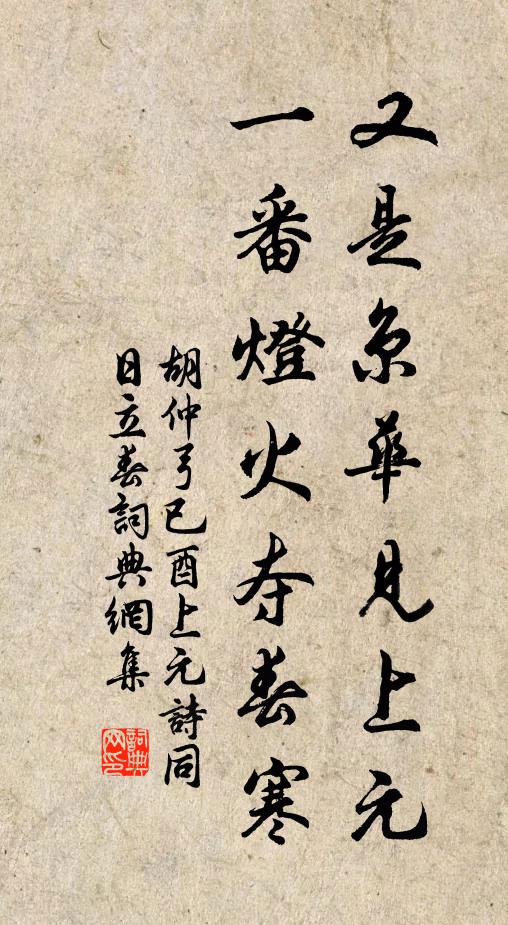 又是京華見上元
一番燈火夺春寒
胡仲弓己酉上元詩同
日立春詞典網集
詞典
网印